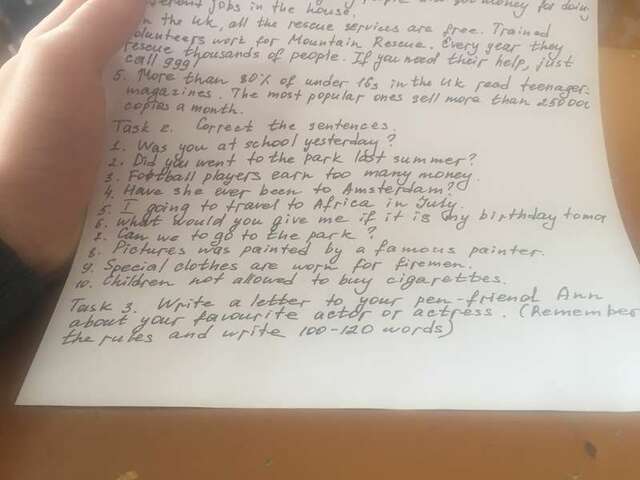 jobs in the house,
in the UK, all the rescue services are free. Trained
volunteers work for Mountain Rescue. Every year they
rescue thousands of people. If you need their help, just
call 999!
5. More than 80% of under 16s in the UK read teenager
magazines. The most popular ones sell more than 250 000
copies a month.
Task 2. Correct the sentences.
1. Was you at school yesterday?
2. Did you went to the park last summer?
3. Football players earn too many money.
4. Have she ever been to Amsterdam?
5. I going to travel to Africa in July.
6. What would you give me if it is my birthday tomo
7. Can we to go to the park?
8. Pictures was painted by a famous painter.
9. Special clothes are worn for firemen.
10. Children not allowed to buy cigarettes.
Task 3. Write a letter to your pen-friend Ann
about your favourite actor or actress. (Remember
the rules and write 100-120 words)